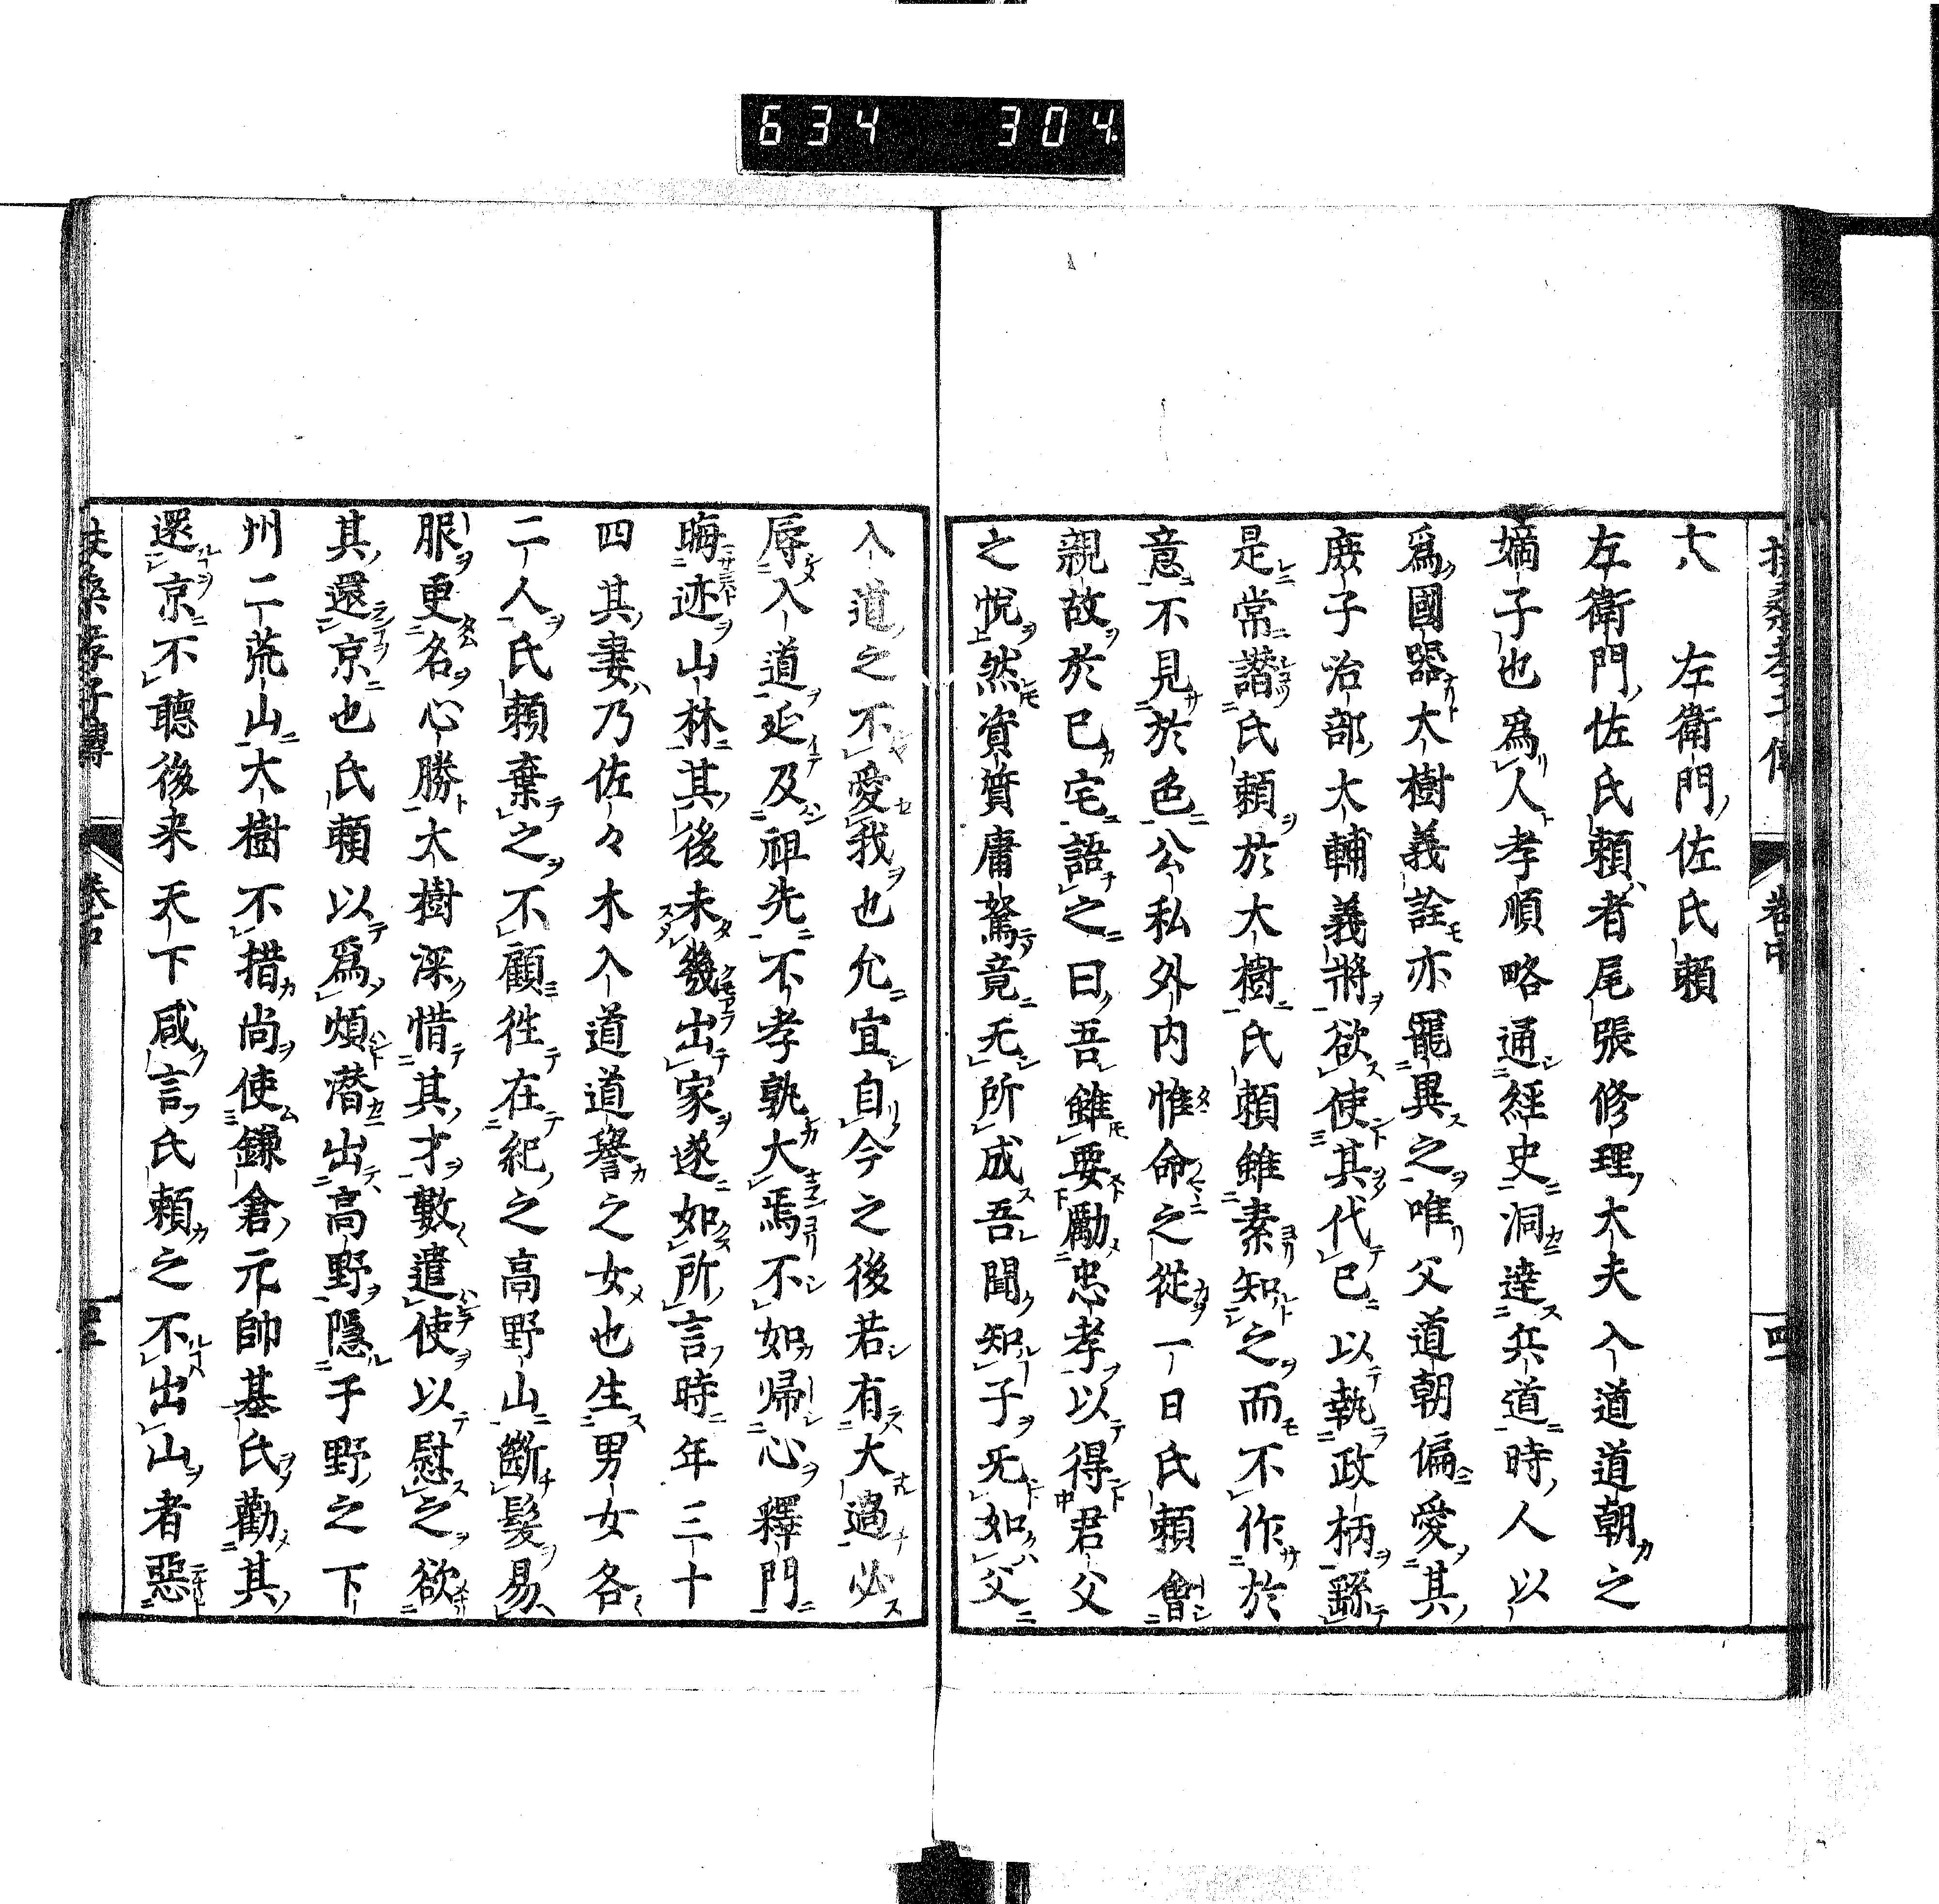 634 304
六 左衛門佐氏賴
左衛門佐氏賴者尾張修理大夫入道道朝之
嫡子也爲人孝順略通經史洞達兵道時人以
爲國器大樹義詮亦寵異之唯父道朝偏愛其
庶子治部大輔義將欲使其代已以執政柄繇
是常譖氏賴於大樹氏賴雖素知之而不作於
意不見於色公私外内惟命之從一日氏賴會
親故於已宅語之曰吾雖要勵忠孝以得君父
之悅然資質庸駑竟无所成吾聞知子无如父
入道之不愛我也允宜自今之後若有大過必
辱入道延及祖先不孝孰大焉不如歸心釋門
晦迹山林其後未幾出家遂如所言時年三十
四其妻乃佐々木入道道譽之女也生男女各
二人氏賴棄之不顧徃在紀之高野山斷髮易
服更名心勝大樹深惜其才數遣使以慰之欲
其還京也氏賴以爲煩潛出高野隱于野之下
州二荒山大樹不措尚使鎌倉元帥基氏勸其
還京不聽後来天下咸言氏賴之不出山者惡
扶桑孝子傳 卷中